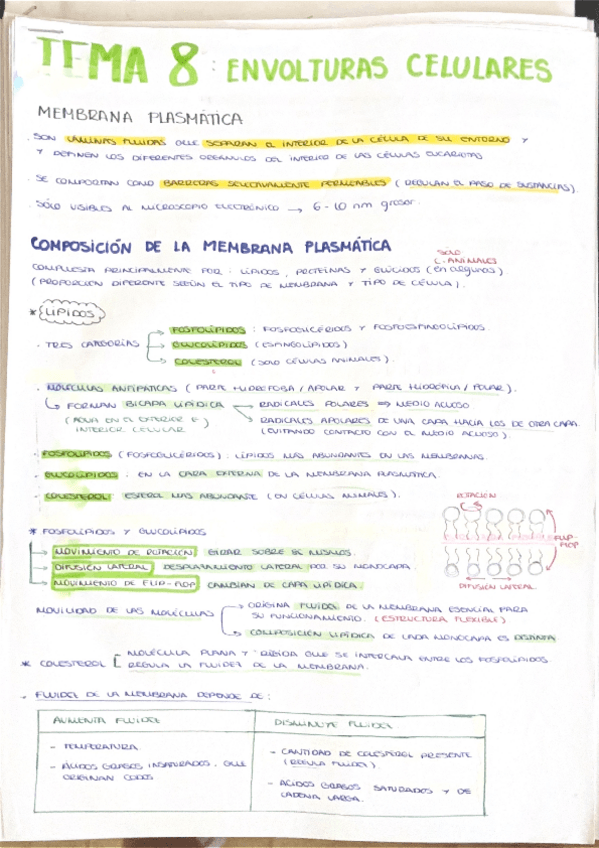 TEMA 8: ENVOLTURAS CELULARES
MEMBRANA PLASMÁTICA
. SON LÁMINAS FLUIDAS QUE SEPARAN EL INTERIOR DE LA CÉLULA DE SU ENTORNO Y
Y DEFINEN LOS DIFERENTES ORGÁNULOS DEL INTERIOR DE LAS CÉLULAS EUCARIOTAS
. SE COMPORTAN COMO BARRERAS SELECTIVAMENTE PERMEABLES (REGULAN EL PASO DE SUSTANCIAS).
. SÓLO VISIBLES AL MICROSCOPIO ELECTRÓNICO → 6-10 nm grosor.
COMPOSICIÓN DE LA MEMBRANA PLASMÁTICA
SÓLO
C. ANIMALES
COMPUESTA PRINCIPALMENTE POR: LÍPIDOS, PROTEÍNAS Y GLÚCIDOS (en algunos).
(PROPORCIÓN DIFERENTE SEGÚN EL TIPO DE MEMBRANA Y TIPO DE CÉLULA).
* LIPIDOS
. TRES CATEGORÍAS
→ FOSFOLÍPIDOS: FOSFOGLICÉRIDOS Y FOSFOESFINGOLÍPIDOS.
→ GLUCOLÍPIDOS (ESFINGOLÍPIDOS)
→ COLESTEROL (SOLO CÉLULAS ANIMALES).
. MOLÉCULAS ANFIPÁTICAS (PARTE HIDRÓFOBA/APOLAR Y PARTE HIDRÓFILA/POLAR).
↳ FORMAN BICAPA LIPÍDICA → RADICALES POLARES ⇒ MEDIO ACUOSO
(AGUA EN EL EXTERIOR E INTERIOR CELULAR
→ RADICALES APOLARES DE UNA CAPA HACIA LOS DE OTRA CAPA.
(EVITANDO CONTACTO CON EL MEDIO ACUOSO).
. FOSFOLÍPIDOS (FOSFOGLICÉRIDOS): LÍPIDOS MÁS ABUNDANTES EN LAS MEMBRANAS.
. GLUCOLÍPIDOS: EN LA CARA EXTERNA DE LA MEMBRANA PLASMÁTICA.
. COLESTEROL: ESTEROL MÁS ABUNDANTE (EN CÉLULAS ANIMALES).
ROTACIÓN
FLIP-
FLOP
DIFUSIÓN LATERAL
* FOSFOLÍPIDOS Y GLUCOLÍPIDOS
→ MOVIMIENTO DE ROTACIÓN: GIRAR SOBRE SÍ MISMOS.
→ DIFUSIÓN LATERAL: DESPLAZAMIENTO LATERAL POR SU MONOCAPA.
→ MOVIMIENTO DE FLIP-FLOP: CAMBIAN DE CAPA LIPÍDICA.
MOVILIDAD DE LAS MOLÉCULAS
→ ORIGINA FLUIDEZ DE LA MEMBRANA ESENCIAL PARA
SU FUNCIONAMIENTO. (ESTRUCTURA FLEXIBLE)
→ COMPOSICIÓN LIPÍDICA DE CADA MONOCAPA ES DISTINTA
* COLESTEROL [ MOLÉCULA PLANA Y RÍGIDA QUE SE INTERCALA ENTRE LOS FOSFOLÍPIDOS
REGULA LA FLUIDEZ DE LA MEMBRANA.
. FLUIDEZ DE LA MEMBRANA DEPENDE DE:
AUMENTA FLUIDEZ
DISMINUYE FLUIDEZ
- TEMPERATURA.
- ÁCIDOS GRASOS INSATURADOS, QUE
ORIGINAN CODOS
- CANTIDAD DE COLESTEROL PRESENTE
(REGULA FLUIDEZ).
- ÁCIDOS GRASOS SATURADOS Y DE
CADENA LARGA.